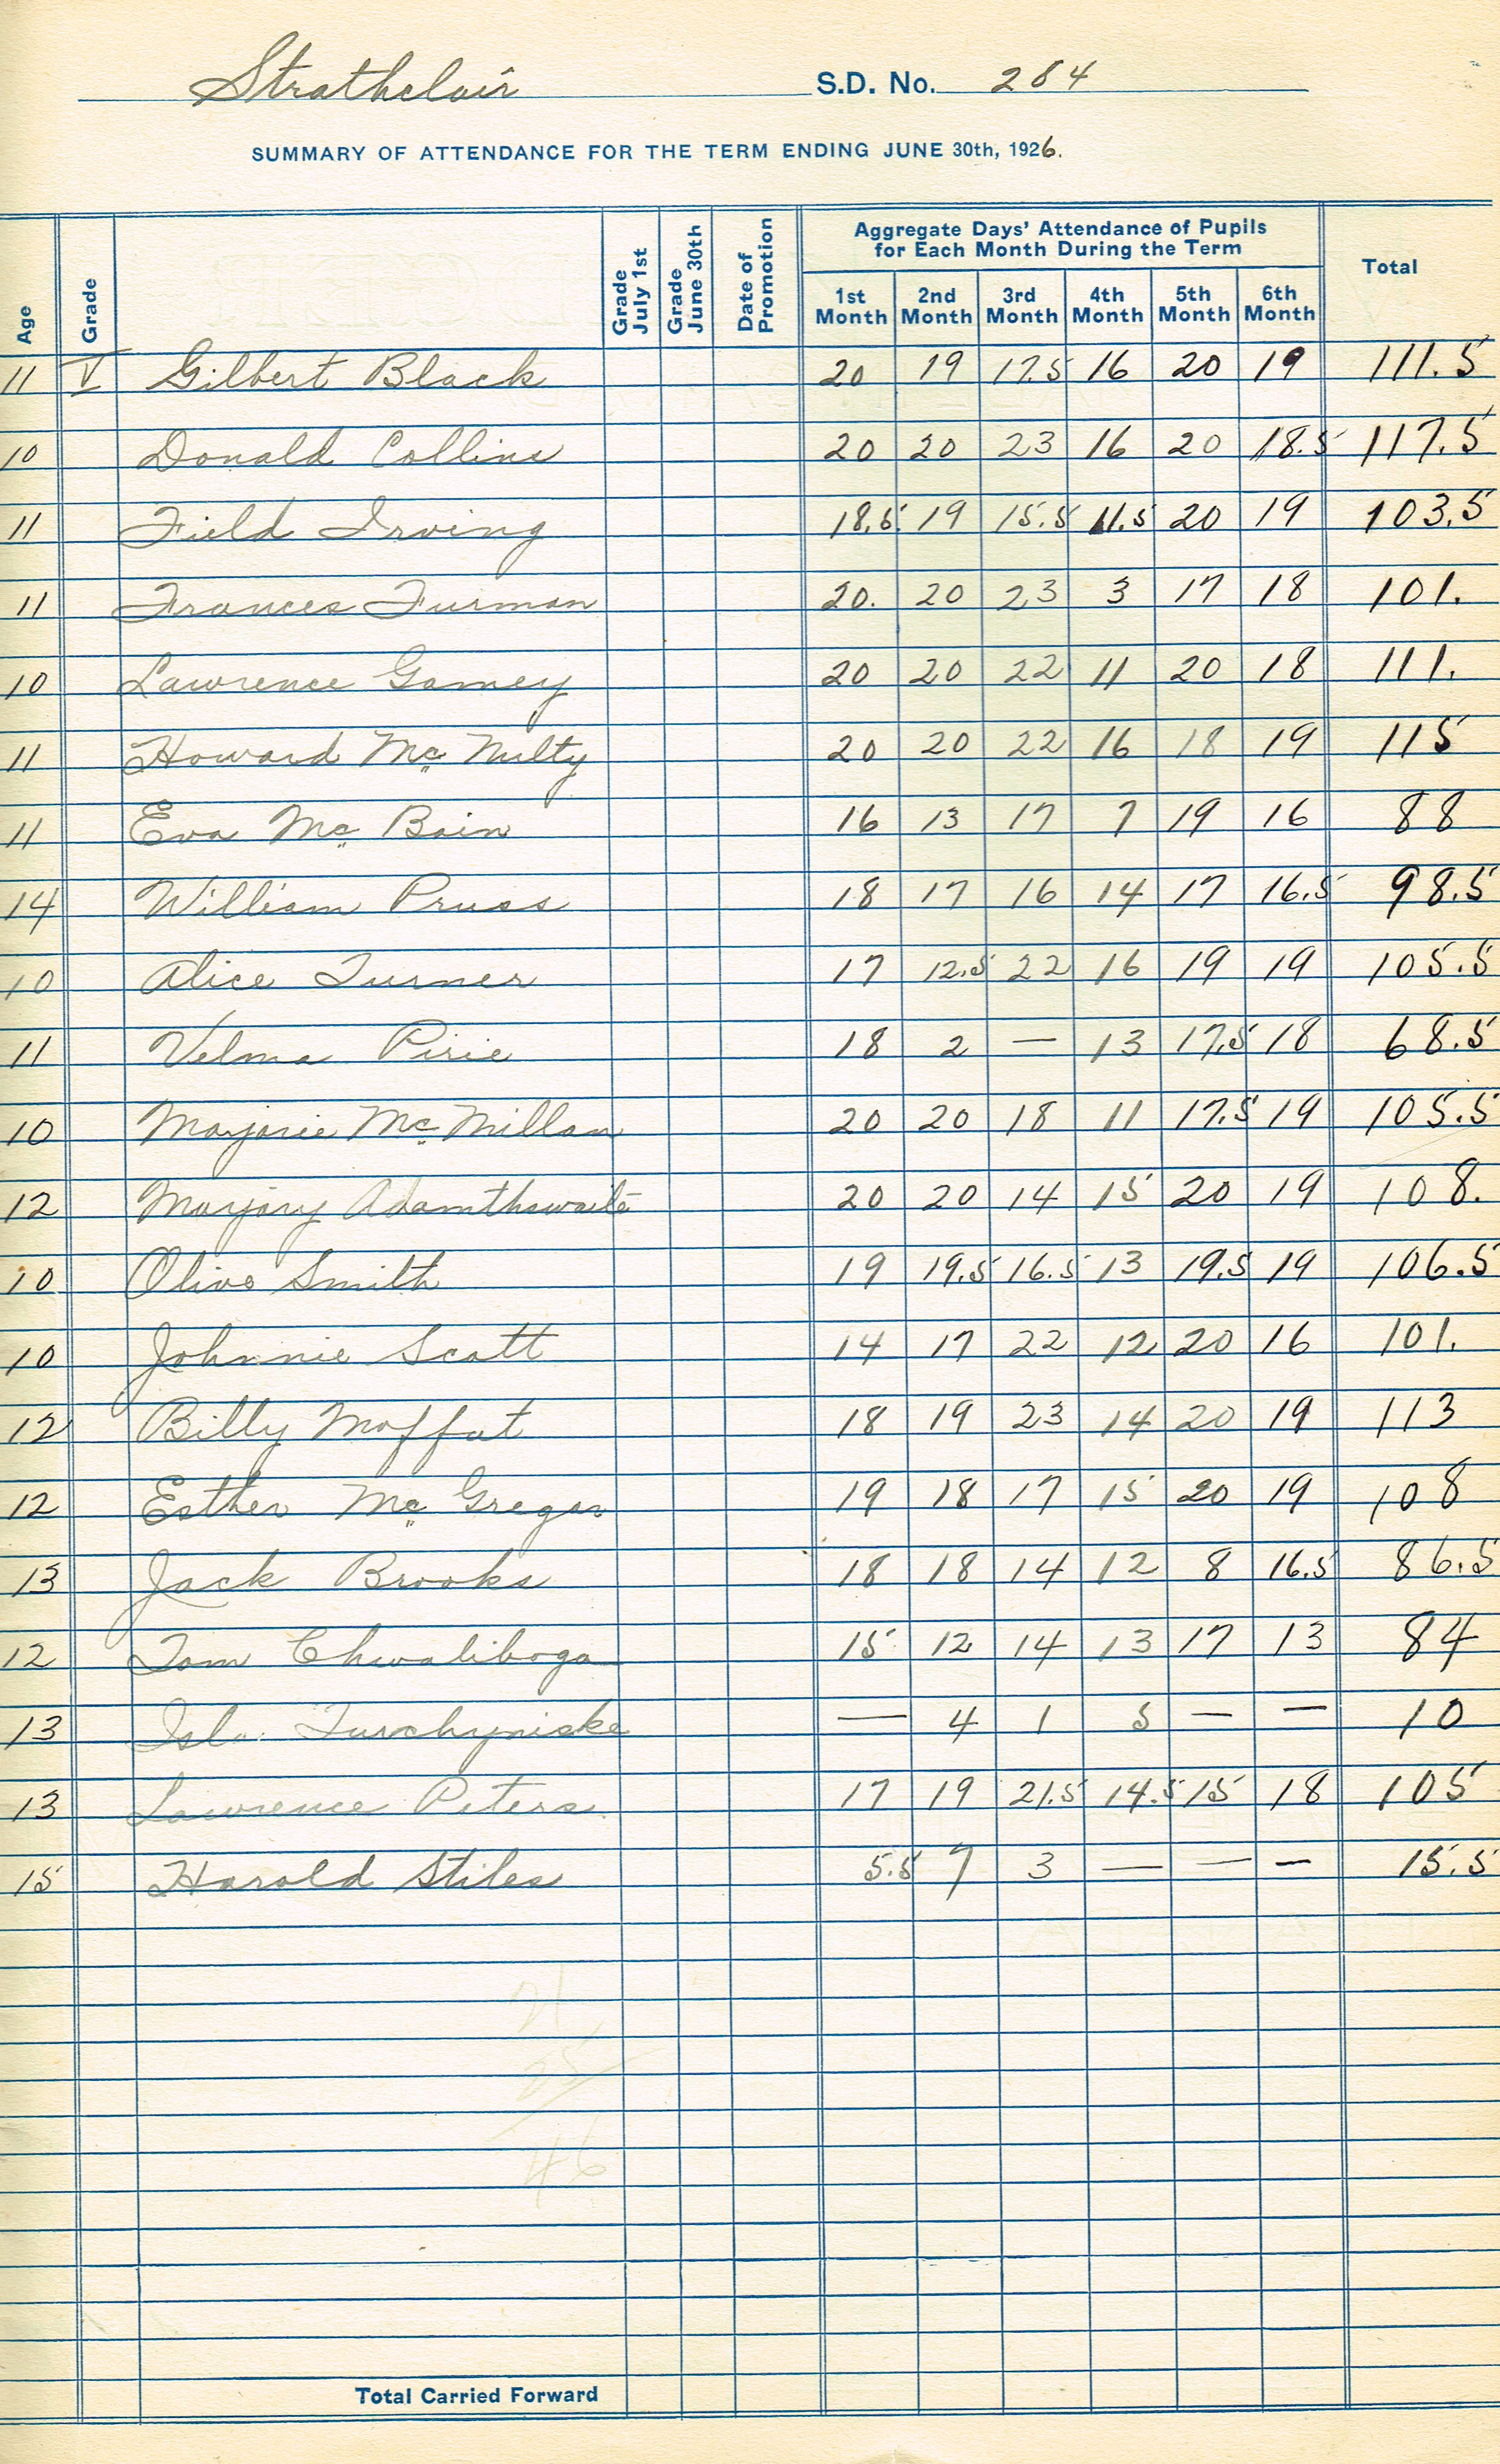 Strathclair S.D. No. 284
SUMMARY OF ATTENDANCE FOR THE TERM ENDING JUNE 30th, 1926.
Age Grade Grade July 1st Grade June 30th Date of Promotion Aggregate Days' Attendance of Pupils for Each Month During the Term Total
1st Month 2nd Month 3rd Month 4th Month 5th Month 6th Month
11 V Gilbert Black 20 19 17.5 16 20 19 111.5
10 Donald Collins 20 20 23 16 20 18.5 117.5
11 Field Irving 18.5 19 15.5 11.5 20 19 103.5
11 Frances Furman 20. 20 23 3 17 18 101.
10 Lawrence Gamey 20 20 22 11 20 18 111.
11 Howard McNulty 20 20 22 16 18 19 115
11 Eva McBain 16 13 17 7 19 16 88
14 William Pruss 18 17 16 14 17 16.5 98.5
10 Alice Turner 17 12.5 22 16 19 19 105.5
11 Velma Pirie 18 2 — 13 17.5 18 68.5
10 Marjorie McMillan 20 20 18 11 17.5 19 105.5
12 Marjory Adamthwaite 20 20 14 15 20 19 108.
10 Olive Smith 19 19.5 16.5 13 19.5 19 106.5
10 Johnnie Scott 14 17 22 12 20 16 101.
12 Billy Moffat 18 19 23 14 20 19 113
12 Esther McGregor 19 18 17 15 20 19 108
13 Jack Brooks 18 18 14 12 8 16.5 86.5
12 Tom Chwaliboga 15 12 14 13 17 13 84
13 Turchyniske — 4 1 5 — — 10
13 Lawrence Peters 17 19 21.5 14.5 15 18 105
15 Harold Stiles 5.5 7 3 — — — 15.5
21
25
46
Total Carried Forward